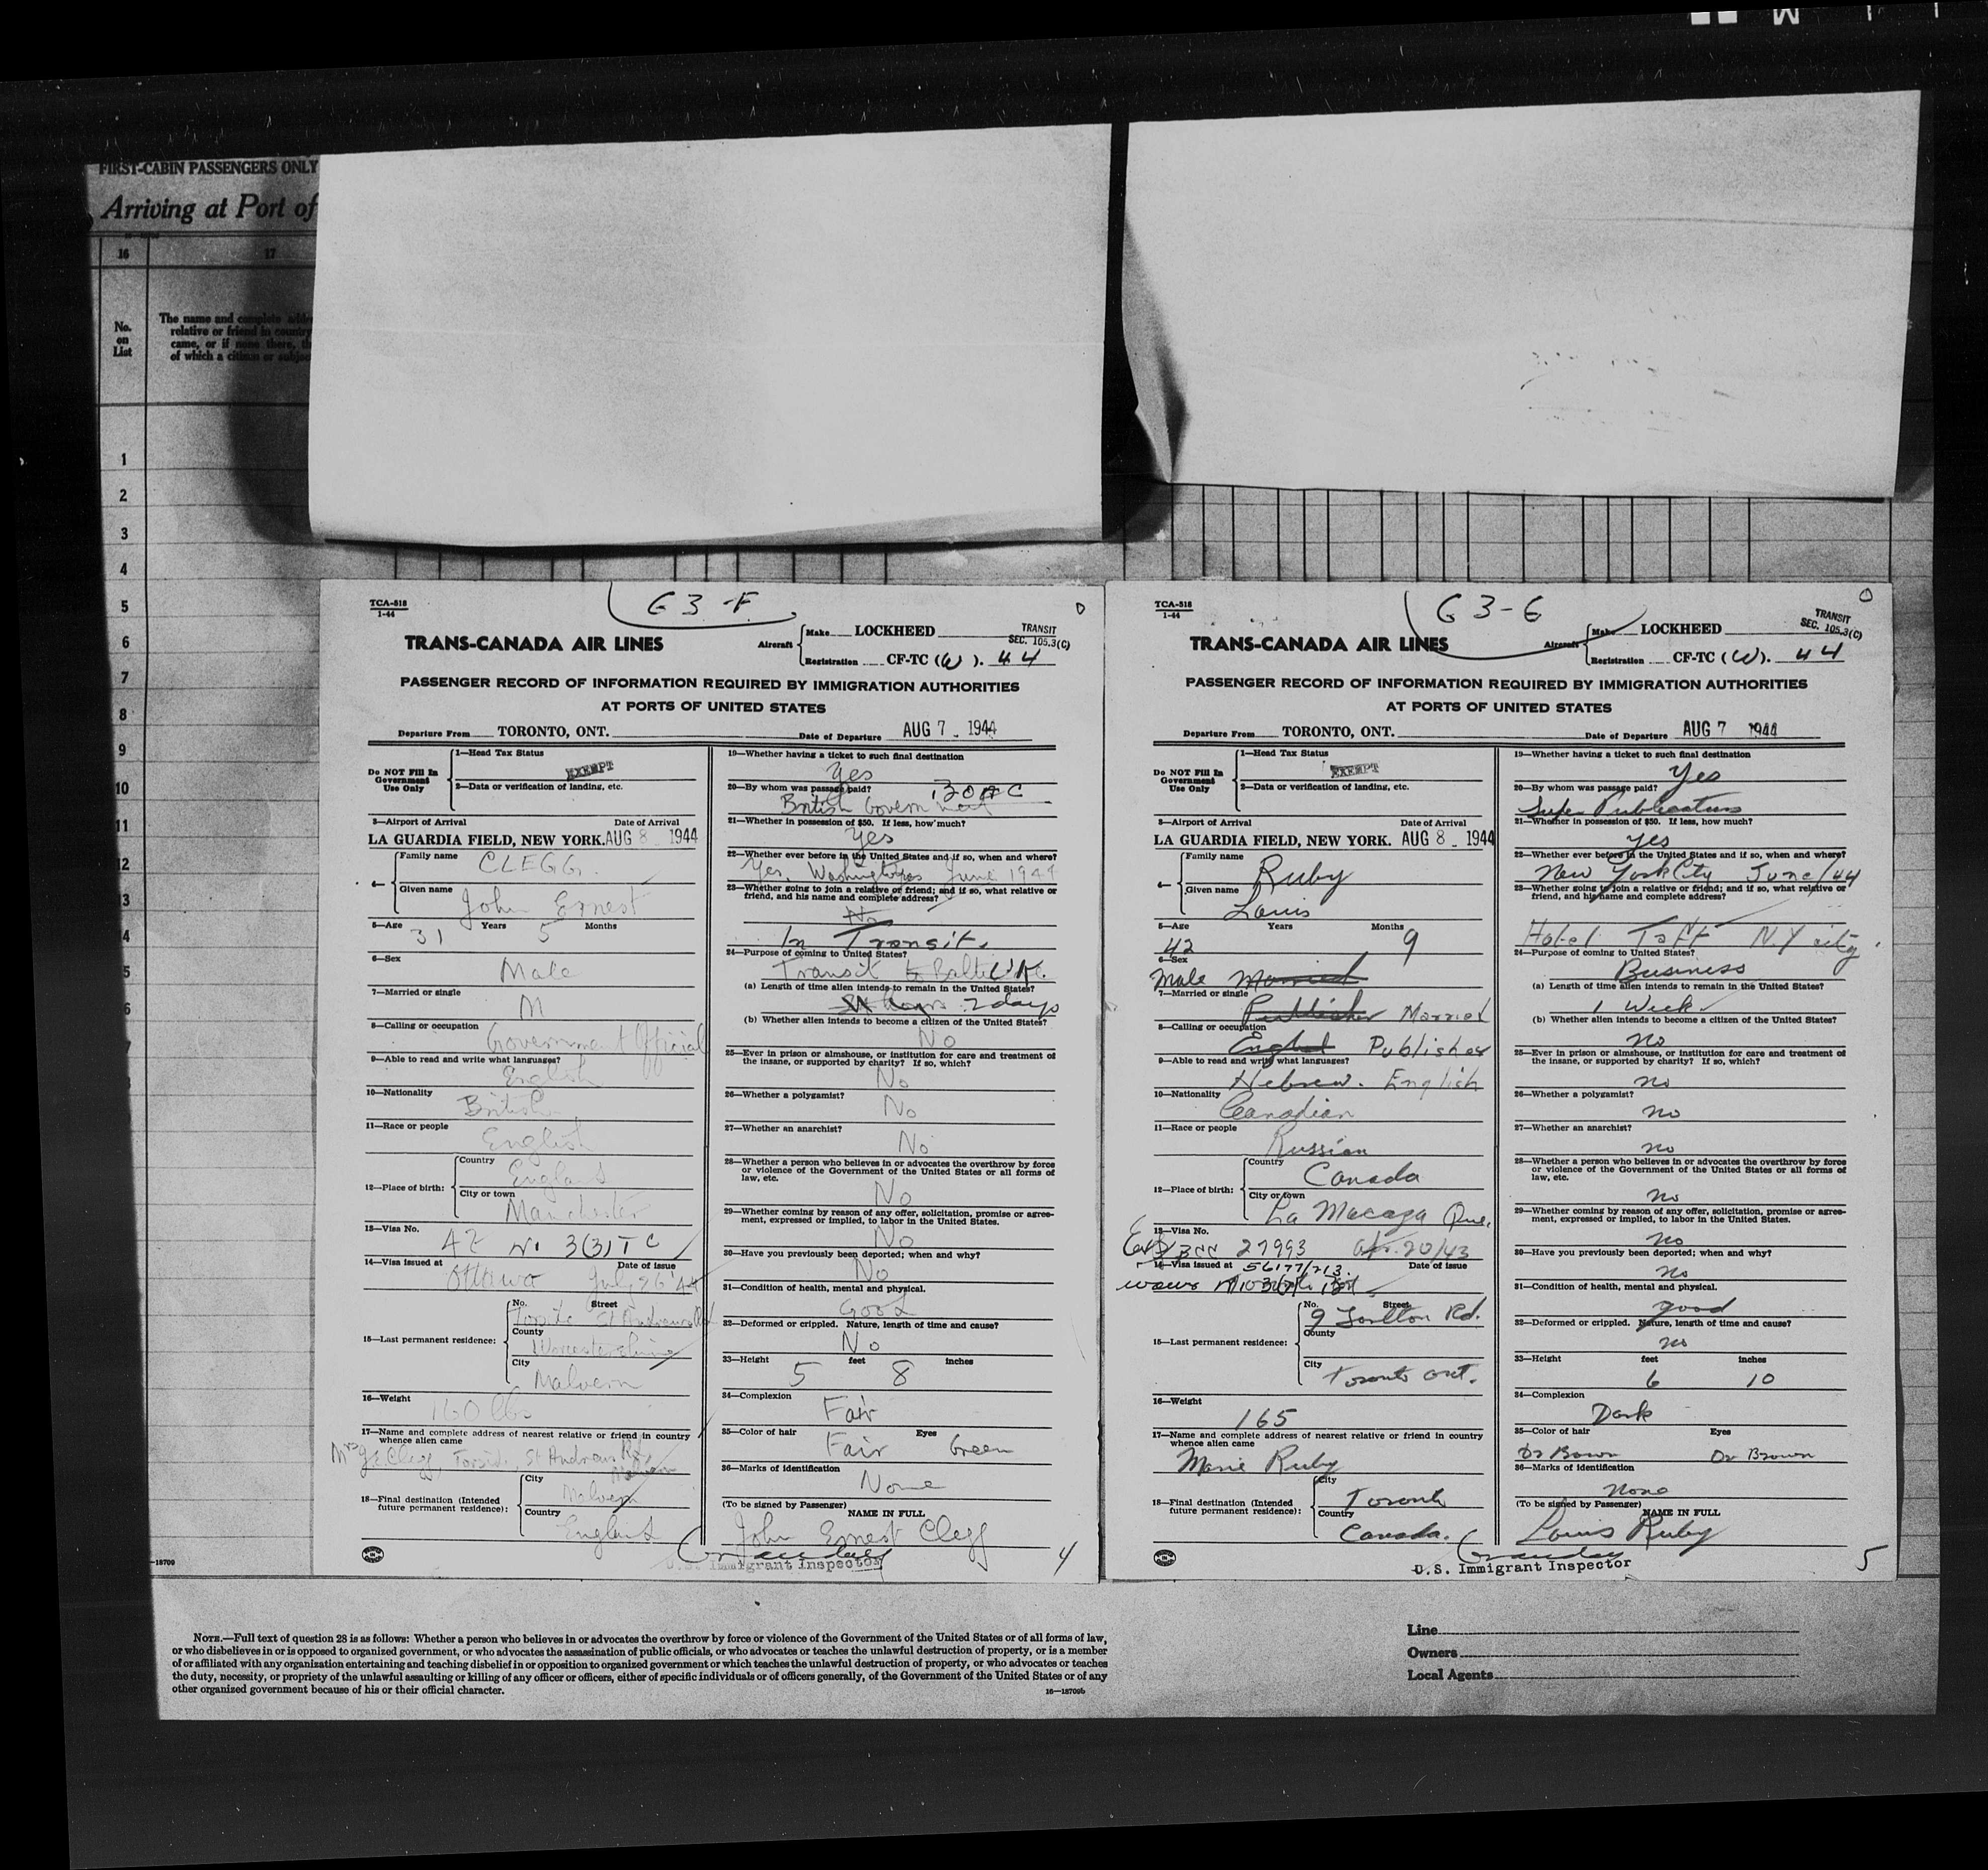 FIRST-CABIN PASSENGERS ONLY
Arriving at Port of
16 17
No.
on
List
The name and complete
relative or friend in country
came, or if none there,
of which a citizen or subject
1
2
3
4
5
6
7
8
9
10
11
12
3
4
5
6
TCA-518
1-44
G 3 -F
TRANS-CANADA AIR LINES
Aircraft
Make LOCKHEED
Registration CF-TC (W). 44
TRANSIT
SEC. 105.3(C)
PASSENGER RECORD OF INFORMATION REQUIRED BY IMMIGRATION AUTHORITIES
AT PORTS OF UNITED STATES
Departure From TORONTO, ONT. Date of Departure AUG 7 - 1944
Do NOT Fill In
Government
Use Only
1—Head Tax Status
EXEMPT
2—Data or verification of landing, etc.
3—Airport of Arrival Date of Arrival
LA GUARDIA FIELD, NEW YORK. AUG 8 - 1944
4—
Family name CLEGG.
Given name John Ernest
5—Age 31 Years 5 Months
6—Sex
Male
7—Married or single
M
8—Calling or occupation
Government Official
9—Able to read and write what languages?
English
10—Nationality
British
11—Race or people
English
12—Place of birth:
Country
England
City or town
Manchester
13—Visa No.
3(3) T C
14—Visa issued at Date of issue
Ottawa July 26 '44
15—Last permanent residence:
No. Street
St Andrews Rd
County
Worcestershire
City
Malvern
16—Weight
160 lbs
17—Name and complete address of nearest relative or friend in country
whence alien came
Mrs J E Clegg, St Andrews Rd,
Malvern
18—Final destination (Intended
future permanent residence):
City
Malvern
Country
England
19—Whether having a ticket to such final destination
Yes
20—By whom was passage paid?
British Government
21—Whether in possession of $50. If less, how much?
Yes
22—Whether ever before in the United States and if so, when and where?
Yes, Washington June 1944
23—Whether going to join a relative or friend; and if so, what relative or
friend, and his name and complete address?
No
In Transit.
24—Purpose of coming to United States?
Transit to
(a) Length of time alien intends to remain in the United States?
2 days
(b) Whether alien intends to become a citizen of the United States?
No
25—Ever in prison or almshouse, or institution for care and treatment of
the insane, or supported by charity? If so, which?
No
26—Whether a polygamist?
No
27—Whether an anarchist?
No
28—Whether a person who believes in or advocates the overthrow by force
or violence of the Government of the United States or all forms of
law, etc.
No
29—Whether coming by reason of any offer, solicitation, promise or agree-
ment, expressed or implied, to labor in the United States.
No
30—Have you previously been deported; when and why?
No
31—Condition of health, mental and physical.
Good
32—Deformed or crippled. Nature, length of time and cause?
No
33—Height feet inches
5 8
34—Complexion
Fair
35—Color of hair Eyes
Fair Green
36—Marks of identification
None
(To be signed by Passenger) NAME IN FULL
John Ernest Clegg
U.S. Immigrant Inspector
4
TCA-518
1-44
G 3-G
TRANS-CANADA AIR LINES
Aircraft
Make LOCKHEED
Registration CF-TC (W). 44
TRANSIT
SEC. 105.3(C)
PASSENGER RECORD OF INFORMATION REQUIRED BY IMMIGRATION AUTHORITIES
AT PORTS OF UNITED STATES
Departure From TORONTO, ONT. Date of Departure AUG 7 1944
Do NOT Fill In
Government
Use Only
1—Head Tax Status
EXEMPT
2—Data or verification of landing, etc.
3—Airport of Arrival Date of Arrival
LA GUARDIA FIELD, NEW YORK. AUG 8 - 1944
4—
Family name Ruby
Given name Louis
5—Age Years Months
42 9
6—Sex
Male Married
7—Married or single
Publisher Married
8—Calling or occupation
Publisher
9—Able to read and write what languages?
Hebrew. English
10—Nationality
Canadian
11—Race or people
Russian
12—Place of birth:
Country
Canada
City or town
La Macaza Que.
13—Visa No.
27993 Apr. 20/43
14—Visa issued at 56177/213 Date of issue
15—Last permanent residence:
No. Street
9 Rd.
County
City
Toronto Ont.
16—Weight
165
17—Name and complete address of nearest relative or friend in country
whence alien came
Marie Ruby
18—Final destination (Intended
future permanent residence):
City
Toronto
Country
Canada.
19—Whether having a ticket to such final destination
Yes
20—By whom was passage paid?
Super Publications
21—Whether in possession of $50. If less, how much?
Yes
22—Whether ever before in the United States and if so, when and where?
New York City June/44
23—Whether going to join a relative or friend; and if so, what relative or
friend, and his name and complete address?
Hotel Taft N.Y city.
24—Purpose of coming to United States?
Business
(a) Length of time alien intends to remain in the United States?
1 Week
(b) Whether alien intends to become a citizen of the United States?
No
25—Ever in prison or almshouse, or institution for care and treatment of
the insane, or supported by charity? If so, which?
no
26—Whether a polygamist?
no
27—Whether an anarchist?
no
28—Whether a person who believes in or advocates the overthrow by force
or violence of the Government of the United States or all forms of
law, etc.
no
29—Whether coming by reason of any offer, solicitation, promise or agree-
ment, expressed or implied, to labor in the United States.
no
30—Have you previously been deported; when and why?
no
31—Condition of health, mental and physical.
good
32—Deformed or crippled. Nature, length of time and cause?
no
33—Height feet inches
6 10
34—Complexion
Dark
35—Color of hair Eyes
Dr Brown Dr Brown
36—Marks of identification
none
(To be signed by Passenger) NAME IN FULL
Louis Ruby
U.S. Immigrant Inspector
5
—18709
NOTE.—Full text of question 28 is as follows: Whether a person who believes in or advocates the overthrow by force or violence of the Government of the United States or of all forms of law,
or who disbelieves in or is opposed to organized government, or who advocates the assassination of public officials, or who advocates or teaches the unlawful destruction of property, or is a member
of or affiliated with any organization entertaining and teaching disbelief in or opposition to organized government or which teaches the unlawful destruction of property, or who advocates or teaches
the duty, necessity, or propriety of the unlawful assaulting or killing of any officer or officers, either of specific individuals or of officers generally, of the Government of the United States or of any
other organized government because of his or their official character.
16—18709b
Line
Owners
Local Agents